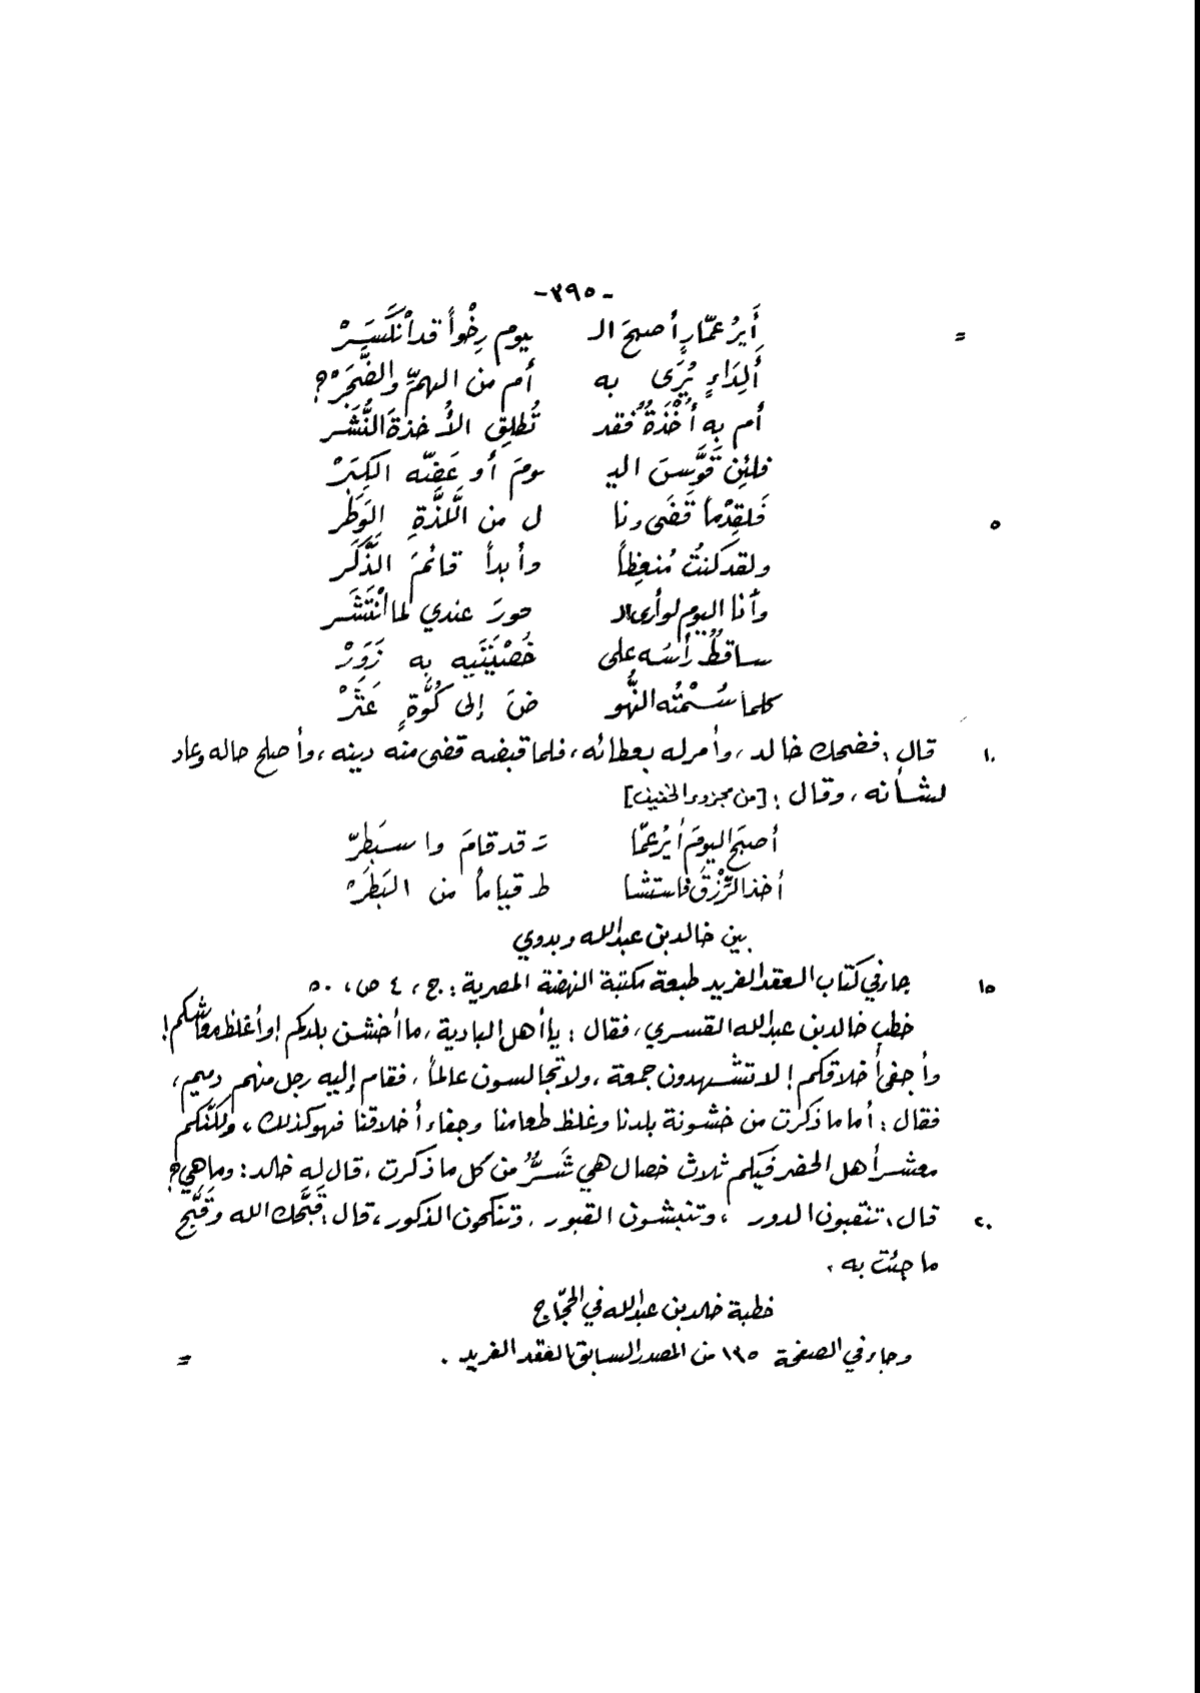 -٣٩٥-
= أَيرُ عمّارٍ أصبحَ الـ يوم رِخْواً قد انْكَسَرْ
أَلِدَاءٍ يُرَى به أم من الهمِّ والضَّجَرْ؟
أم بِهِ أُخْذَةٌ فقد تُطلِق الأُخذةَ النُّشَر
فلئِن قَوَّسَ اليـ ـومَ أو عَضَّه الكِبَرْ
٥ فَلقِدْماً قَضَى ونا ل من اللَّذَّةِ الوَطَر
ولقد كنتُ مُنعِظاً وأبداً قائمَ الذَّكَر
وأنا اليوم لو أرى الـ حورَ عندي لما انْتَشَر
ساقطٌ رأسُه على خُصْيَتَيه به زَوَرْ
كلما سُمْتُه النُّهو ضَ إلى كُوَّةٍ عَثَرْ
١٠ قال: فضحك خالد، وأمر له بعطائه، فلما قبضه قضى منه دينه، وأصلح حاله وعاد
لشأنه، وقال: [من مجزوء الخفيف]
أصبحَ اليومَ أيرُ عمّا رَ قد قامَ واسـبَطرّ
أخذ الرِّزْقَ فاستشا ط قياماً من البَطَرْ
بين خالد بن عبد الله وبدوي
١٥ جاء في كتاب العقد الفريد طبعة مكتبة النهضة المصرية: ج، ٤ ص، ٥٠
خطب خالد بن عبد الله القسري، فقال: يا أهل البادية، ما أخشن بلدكم! وأغلظ معاشكم!
وأجفى أخلاقكم! لا تشهدون جمعة، ولا تجالسون عالماً، فقام إليه رجل منهم دميم،
فقال: أما ما ذكرت من خشونة بلدنا وغلظ طعامنا وجفاء أخلاقنا فهو كذلك، ولكنّكم
معشر أهل الحضر فيكم ثلاث خصال هي شَرٌّ من كل ما ذكرت، قال له خالد: وما هي؟
٢٠ قال: تنقبون الدور، وتنبشون القبور، وتنكحون الذكور، قال: قبَّحك الله وقَبَّح
ما جئت به.
خطبة خالد بن عبد الله في الحجّاج
وجاء في الصفحة ١٣٥ من المصدر السابق العقد الفريد. =